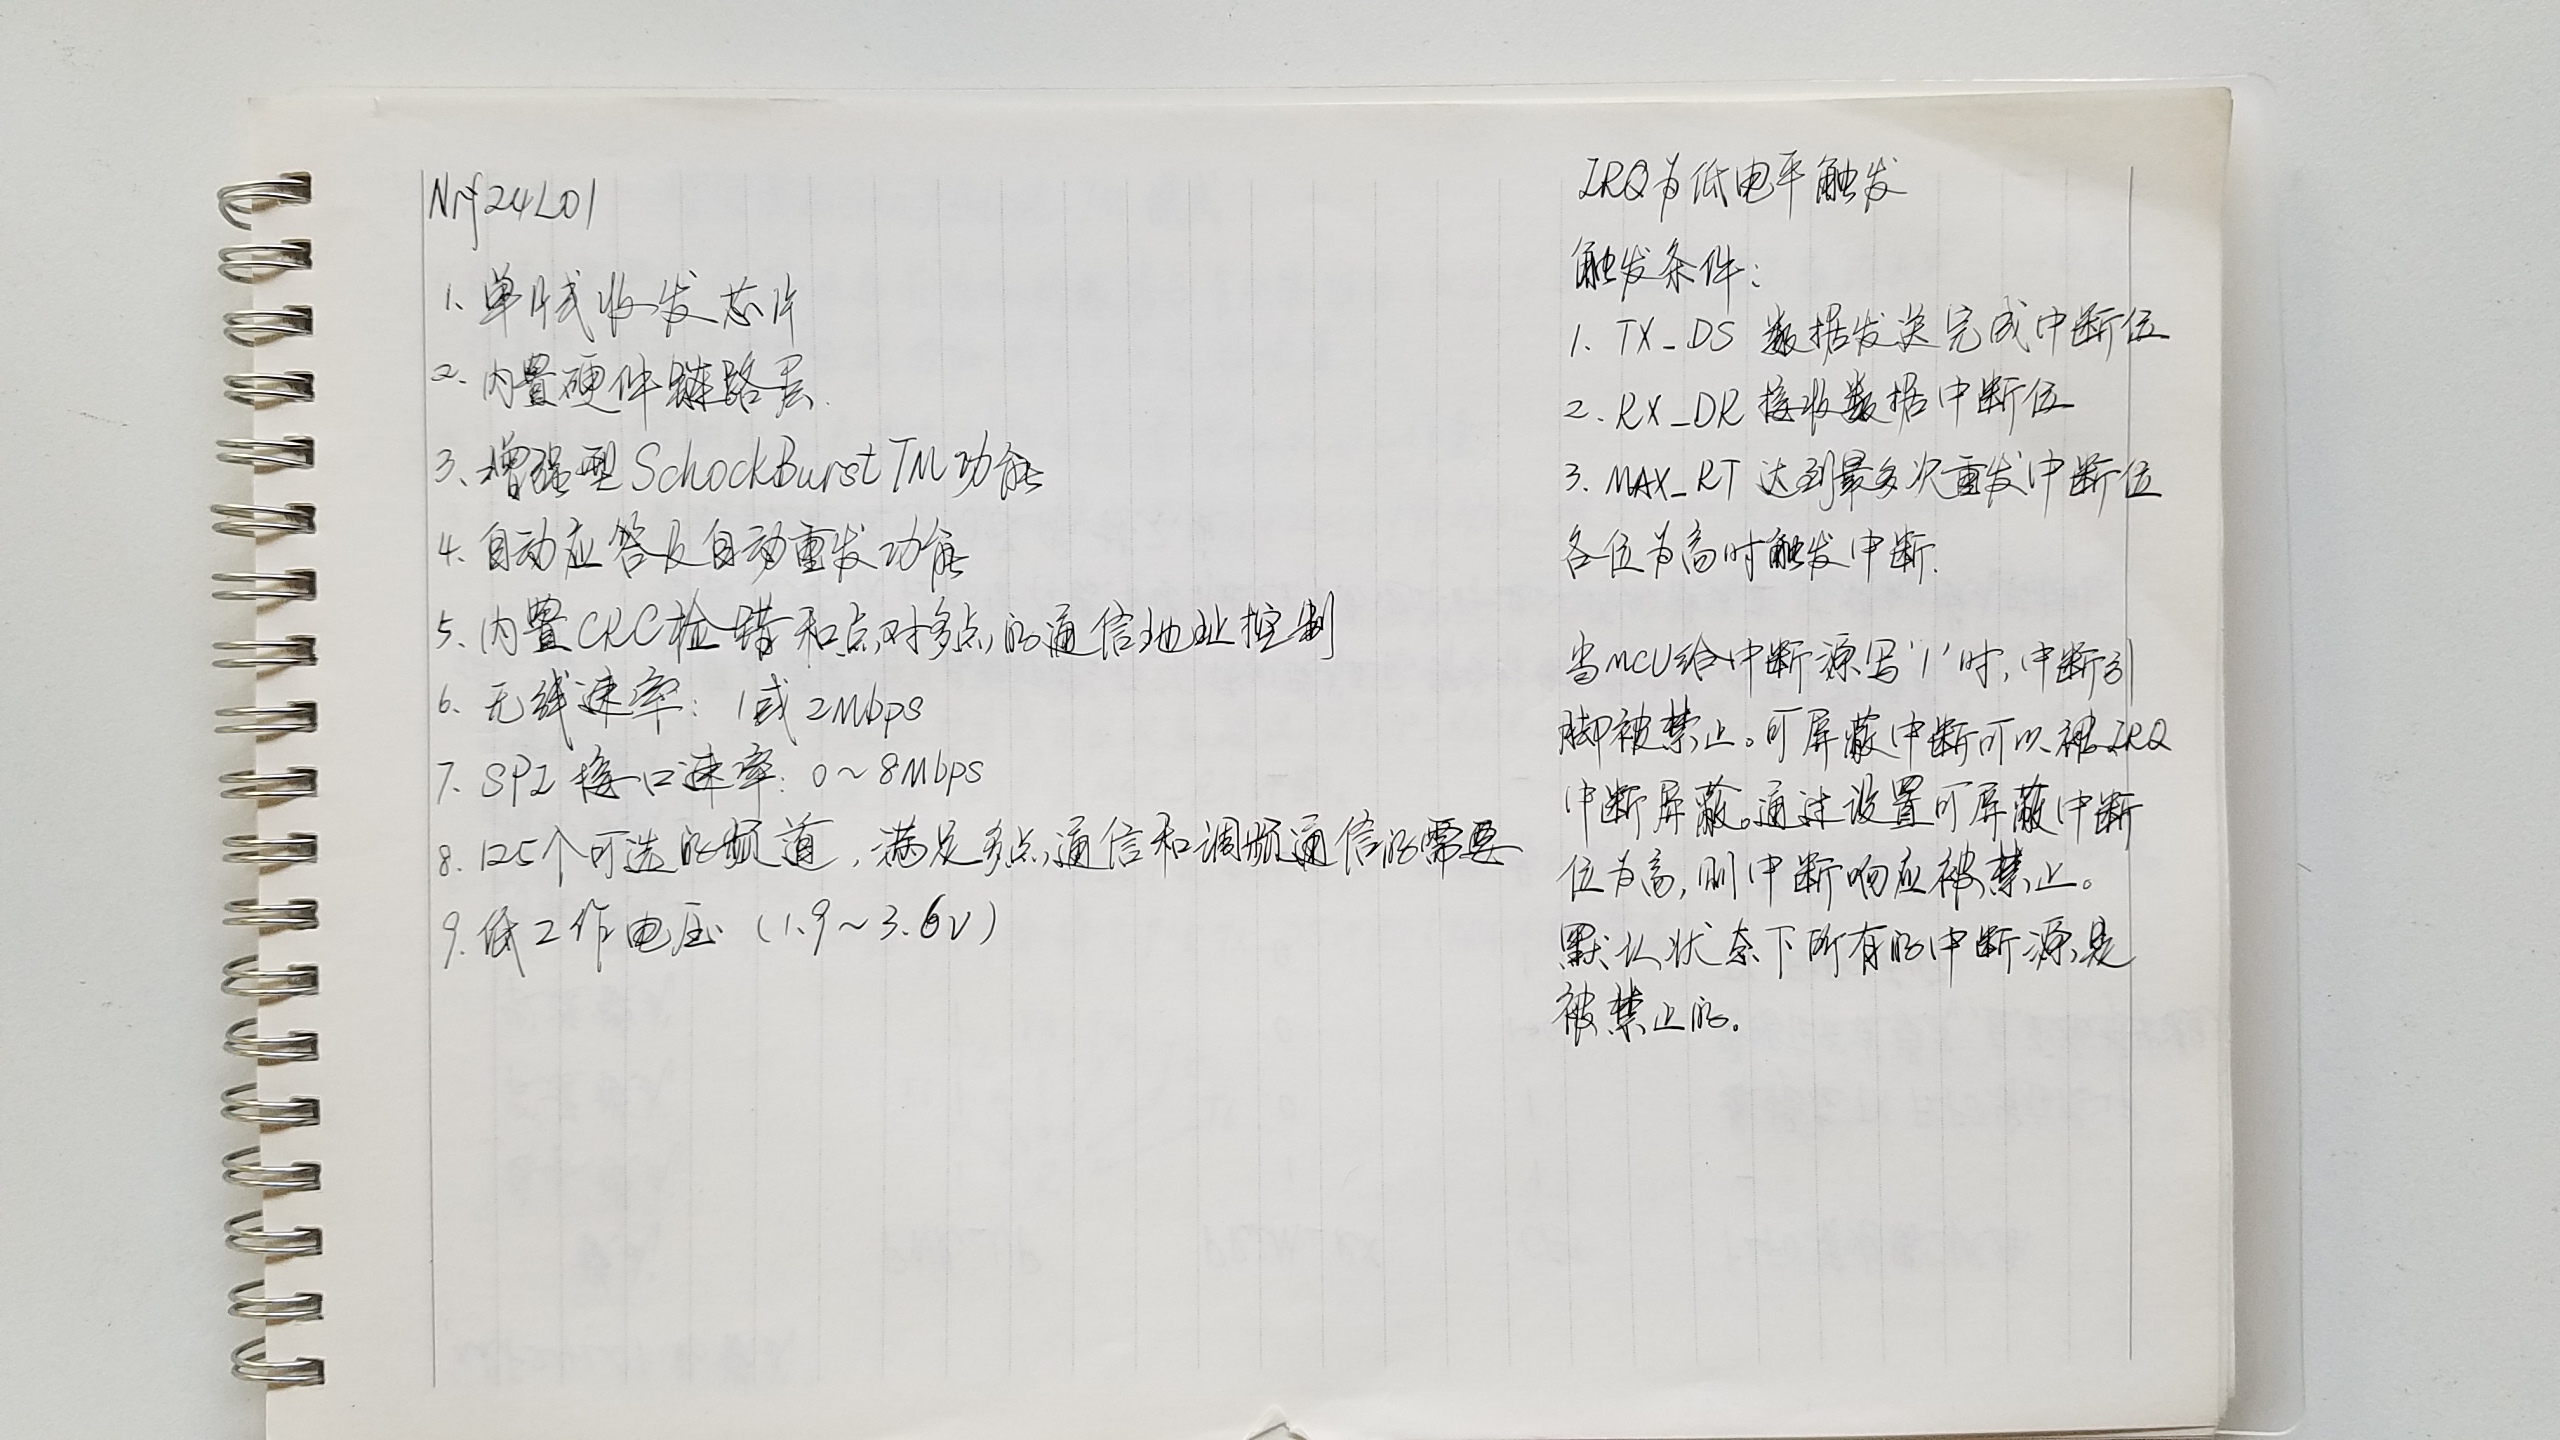 Nrf24L01
1. 单片式收发芯片
2. 内置硬件链路层.
3. 增强型SchockBurstTM功能
4. 自动应答及自动重发功能
5. 内置CRC检错和点对多点的通信地址控制
6. 无线速率: 1或2Mbps
7. SPI 接口速率: 0~8Mbps
8. 125个可选的频道, 满足多点通信和调频通信的需要
9. 低工作电压 (1.9~3.6V)
IRQ为低电平触发
触发条件:
1. TX_DS 数据发送完成中断位
2. RX_DR 接收数据中断位
3. MAX_RT 达到最多次重发中断位
各位为高时触发中断.
当MCU给中断源写'1'时, 中断引
脚被禁止。可屏蔽中断可以被IRQ
中断屏蔽。通过设置可屏蔽中断
位为高, 则中断响应被禁止。
默认状态下所有的中断源是
被禁止的。